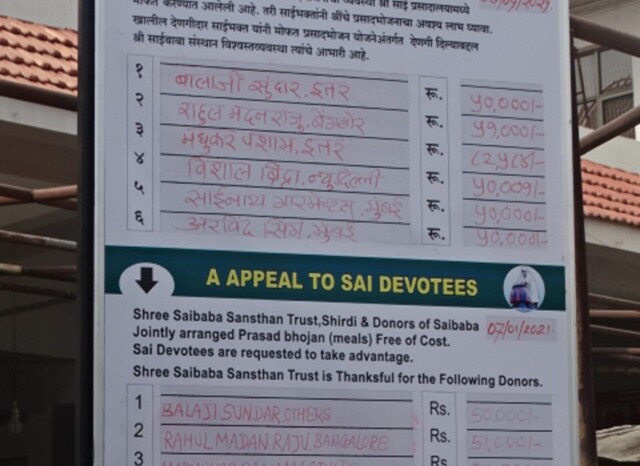 मोफत करण्यात आलेली आहे. तरी साईभक्तांनी श्रींचे प्रसादभोजनाचा अवश्य लाभ घ्यावा.
खालील देणगीदार साईभक्त यांनी मोफत प्रसादभोजन योजनेअंतर्गत देणगी दिल्याबद्दल
श्री साईबाबा संस्थान विश्वस्तव्यवस्था त्यांचे आभारी आहे.
१ बालाजी सुंदार, इतर रू. ५०,०००/-
२ राहुल मदन राजू, बेंगलोर रू. ५१,०००/-
३ मधुकर पशाम, इतर रू. ८२,५८४/-
४ विशाल बिंद्रा, न्यु दिल्ली रू. ५०,००१/-
५ साईनाथ गारमेन्टस, मुंबई रू. ५०,०००/-
६ अरविंद सिंग, मुंबई रू. ५०,०००/-
A APPEAL TO SAI DEVOTEES
Shree Saibaba Sansthan Trust,Shirdi & Donors of Saibaba 07/01/2021
Jointly arranged Prasad bhojan (meals) Free of Cost.
Sai Devotees are requested to take advantage.
Shree Saibaba Sansthan Trust is Thankful for the Following Donors.
1 BALAJI SUNDAR, OTHERS Rs. 50,000/-
2 RAHUL MADAN RAJU, BANGALORE Rs. 51,000/-
3 Rs.